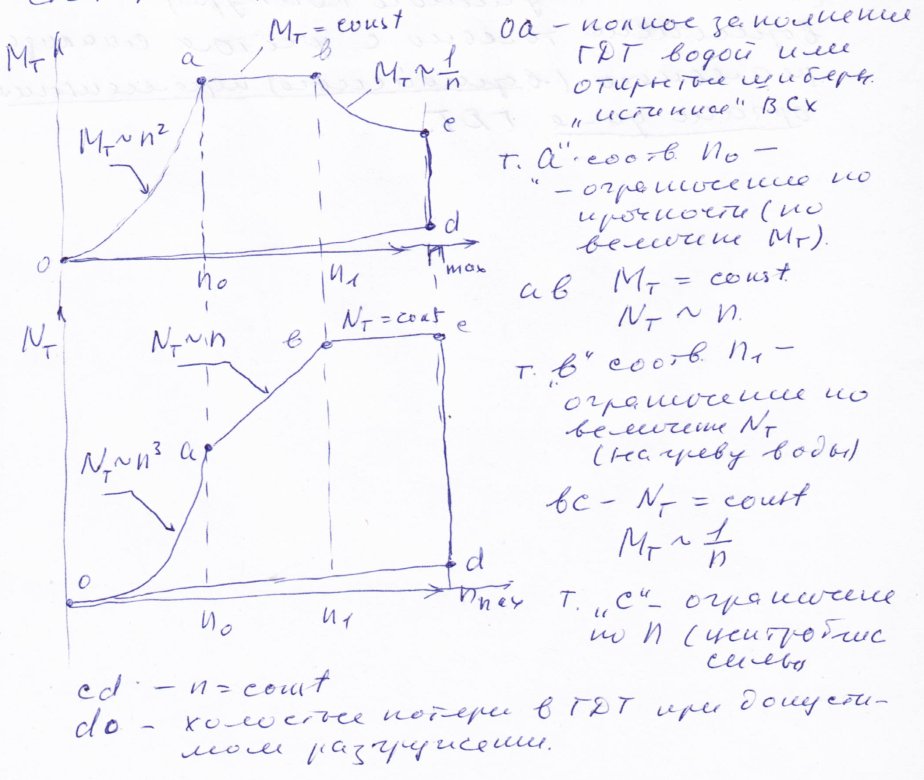 M_T
M_T = const
a
в
M_T ~ 1/n
M_T ~ n²
c
d
0
n_0
n_1
n_max
N_T
N_T = const
N_T ~ n
в
c
a
N_T ~ n³
0
d
n_0
n_1
n_max
oa – полное заполнение
ГДТ водой или
открытые шиберы.
"истинное" ВСХ
т. "a" соотв. n_0 –
– ограничение по
прочности (по
величине M_T).
aв M_T = const.
N_T ~ n.
т. "в" соотв. n_1 –
ограничение по
величине N_T
(нагреву воды)
вc – N_T = const
M_T ~ 1/n
т. "c" – ограничение
по n (центробеж
силы)
cd – n = const
do – холостые потери в ГДТ при допусти-
мом разгружении.